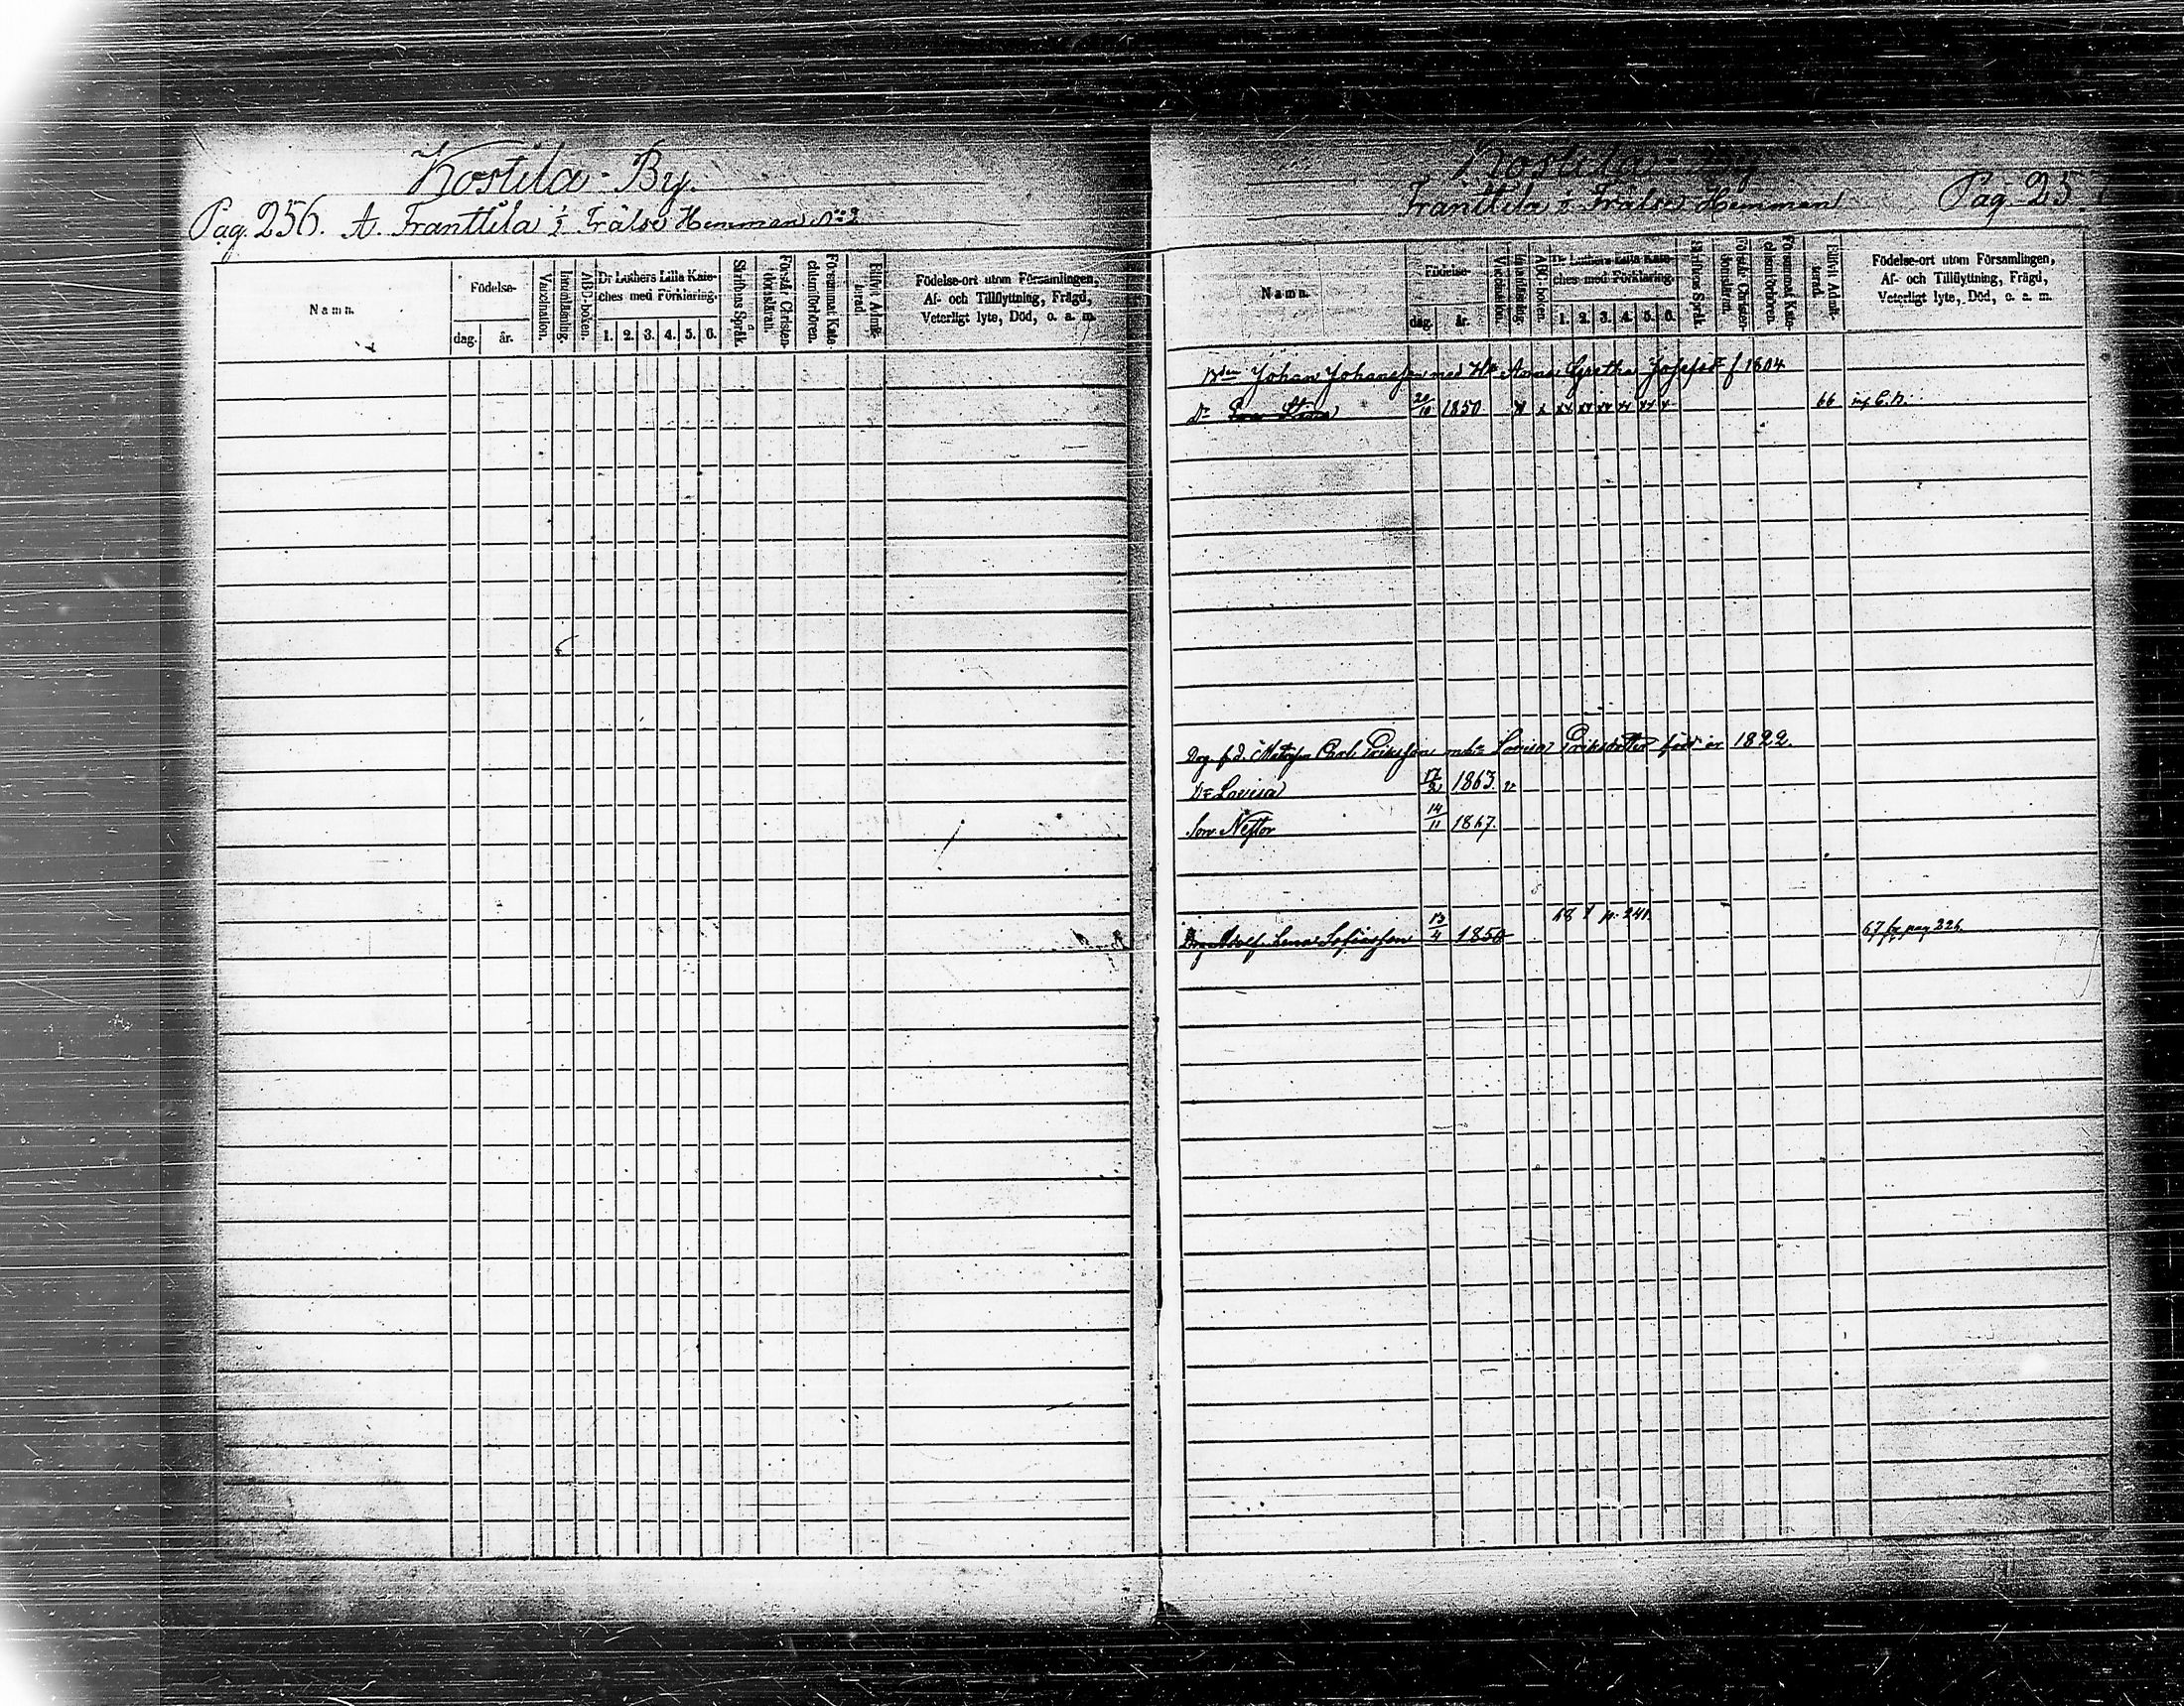 Kostila - By.
Pag. 256. A. Franttila ½ Frälse Hemman N:o 2
Namn.
Födelse-
dag.
år.
Vaccination.
Innanläsning.
ABC-boken.
Dr Luthers Lilla Kate-
ches med Förklaring.
1. 2. 3. 4. 5. 6.
Skriftens Språk.
Förstå Christen-
domskräfn.
Försummat Kate-
chismiförhören.
Blifvit Admit-
terad.
Födelse-ort utom Församlingen,
Af- och Tillflyttning, Frägd,
Veterligt lyte, Död, o. s. m.
Kostila By
Franttila ½ Frälse Hemman
Pag. 25
Namn.
Födelse-
dag.
år.
Vaccination.
Innanläsning.
ABC-boken.
Dr Luthers Lilla Kate-
ches med Förklaring.
1. 2. 3. 4. 5. 6.
Skriftens Språk.
Försummat Kate-
chismiförhören.
Blifvit Admit-
terad.
Födelse-ort utom Församlingen,
Af- och Tillflyttning, Frägd,
Veterligt lyte, Död, o. s. m.
Johan Johansson med H. Anna Gretha Josefsd:r f 1804
Dr Stina 20/10 1850 66
Carl Eriksson Lovisa Eriksdotter född år 1822.
Dr Lovisa 17/2 1863. v
Son Nestor 14/11 1867.
68 p. 241
Adolf Lena Sofiasson 13/4 1850 67 fr pag 226.